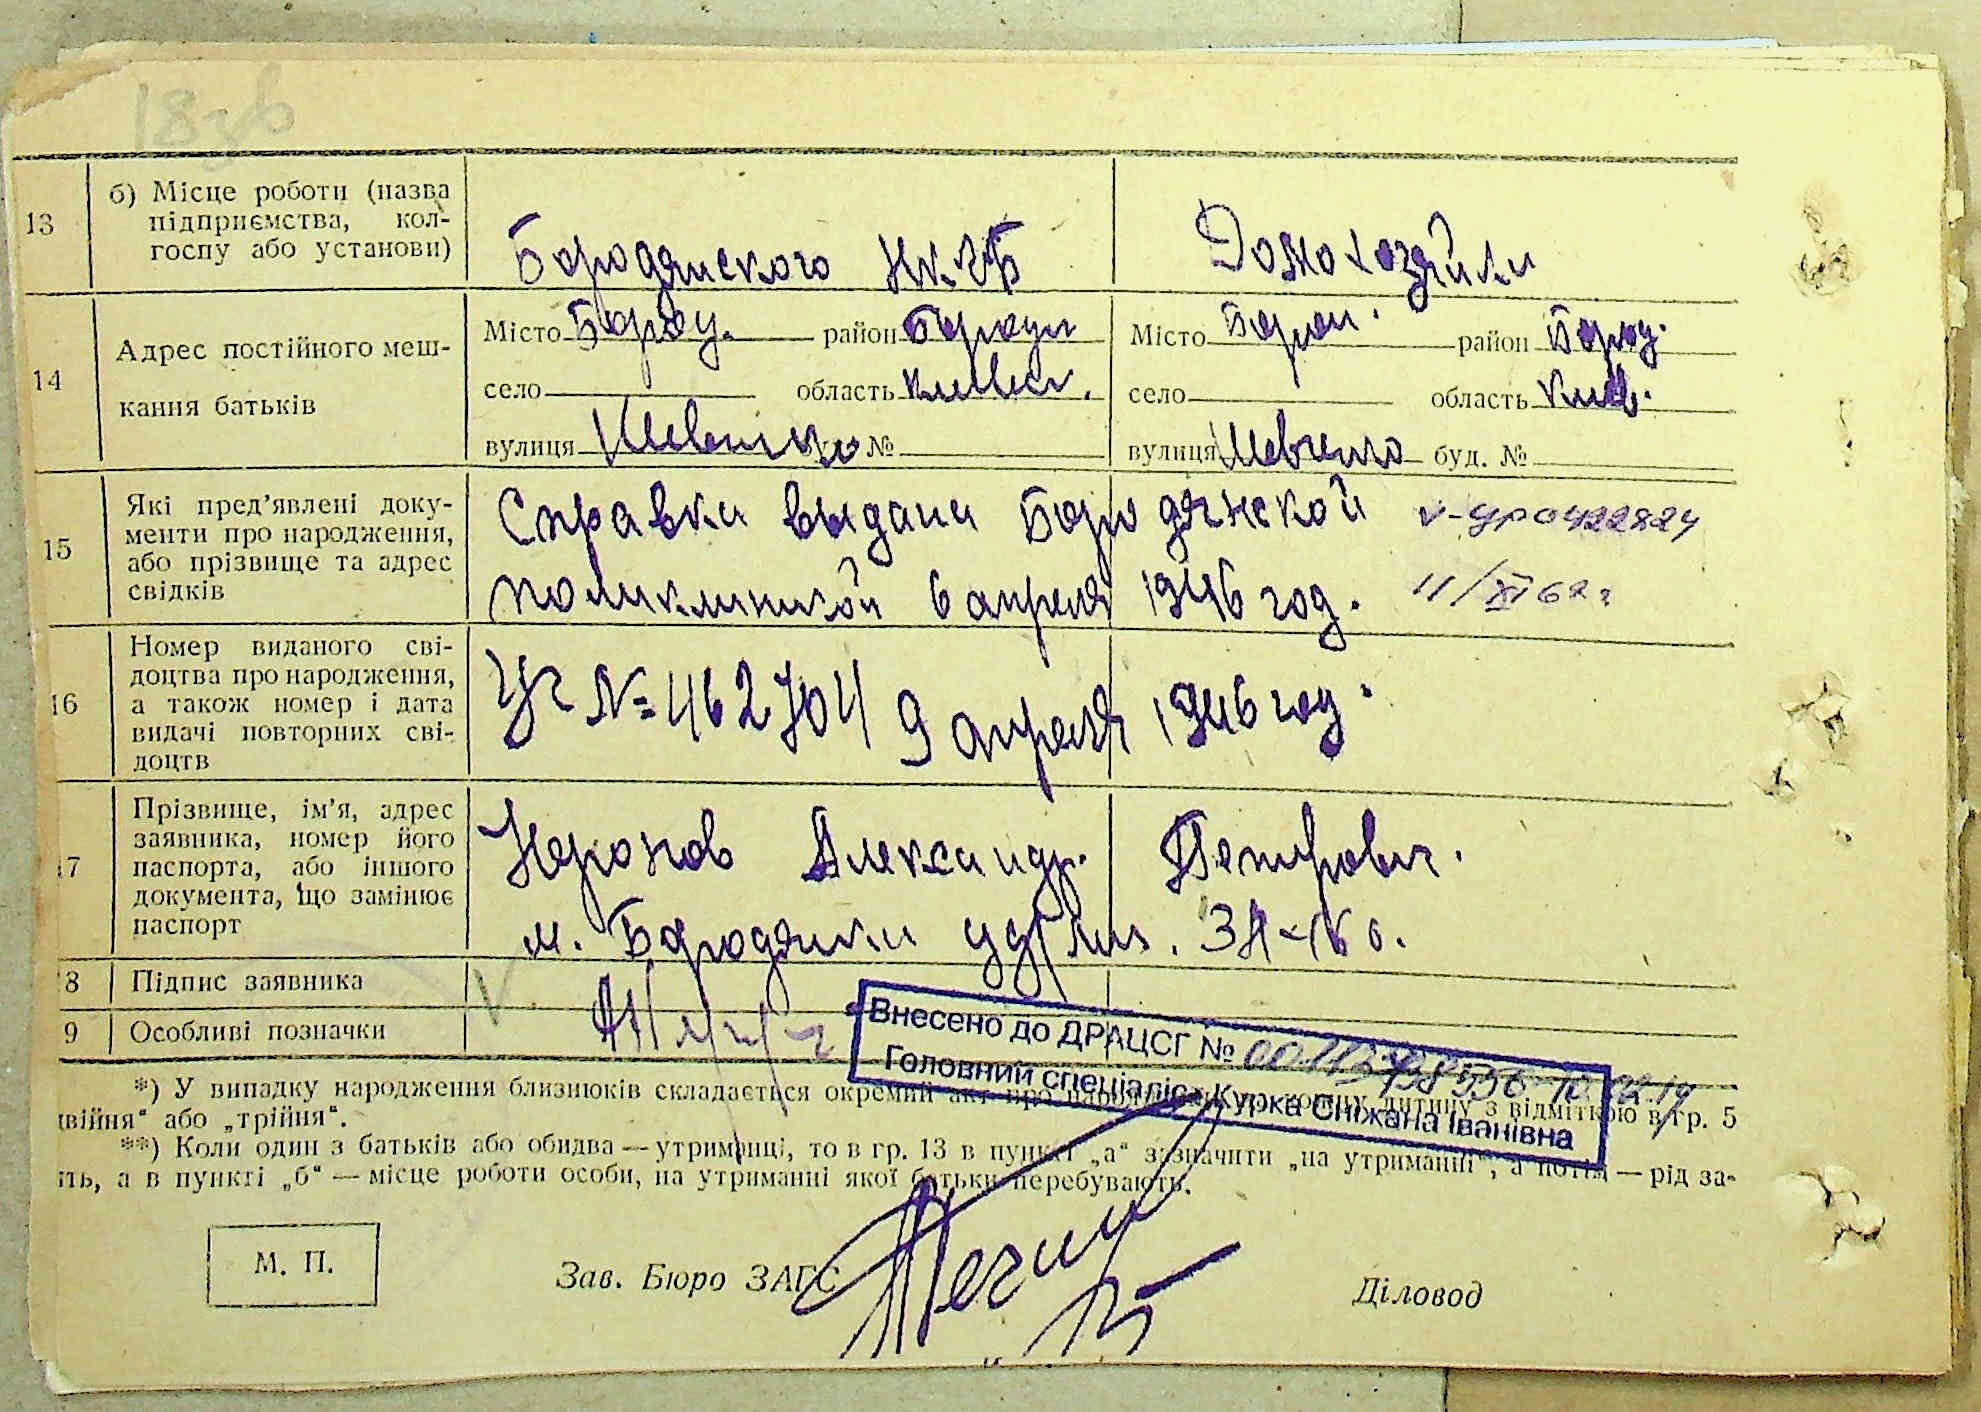 183в
13 б) Місце роботи (назва підприємства, кол-
госпу або установи)
Бородянского НКГБ Домохозяйки
14 Адрес постійного меш-
кання батьків
Місто Бород. район Бородян Місто Бород. район Бород.
село область Киевск. село область Киев.
вулиця Шевченко № вулиця Шевченко буд. №
15 Які пред'явлені доку-
менти про народження,
або прізвище та адрес
свідків
Справка выдана Бородянской V-УР 0422824
поликлиникой 6 апреля 1946 год. 11/XI 62 г
16 Номер виданого сві-
доцтва про народження,
а також номер і дата
видачі повторних сві-
доцтв
№ 462704 9 апреля 1946 год.
17 Прізвище, ім'я, адрес
заявника, номер його
паспорта, або іншого
документа, що замінює
паспорт
Александр Петрович.
м. Бородянки
8 Підпис заявника
9 Особливі позначки
Внесено до ДРАЦСГ №
Головний спеціаліст Курка Сніжана Іванівна
*) У випадку народження близнюків складається окремий акт про народження на кожну дитину з відміткою в гр. 5
двійня" або „трійня".
**) Коли один з батьків або обидва — утриманці, то в гр. 13 в пункті „а" зазначити „на утриманні", а потім — рід за-
ть, а в пункті „б" — місце роботи особи, на утриманні якої батьки перебувають.
М. П. Зав. Бюро ЗАГС Діловод